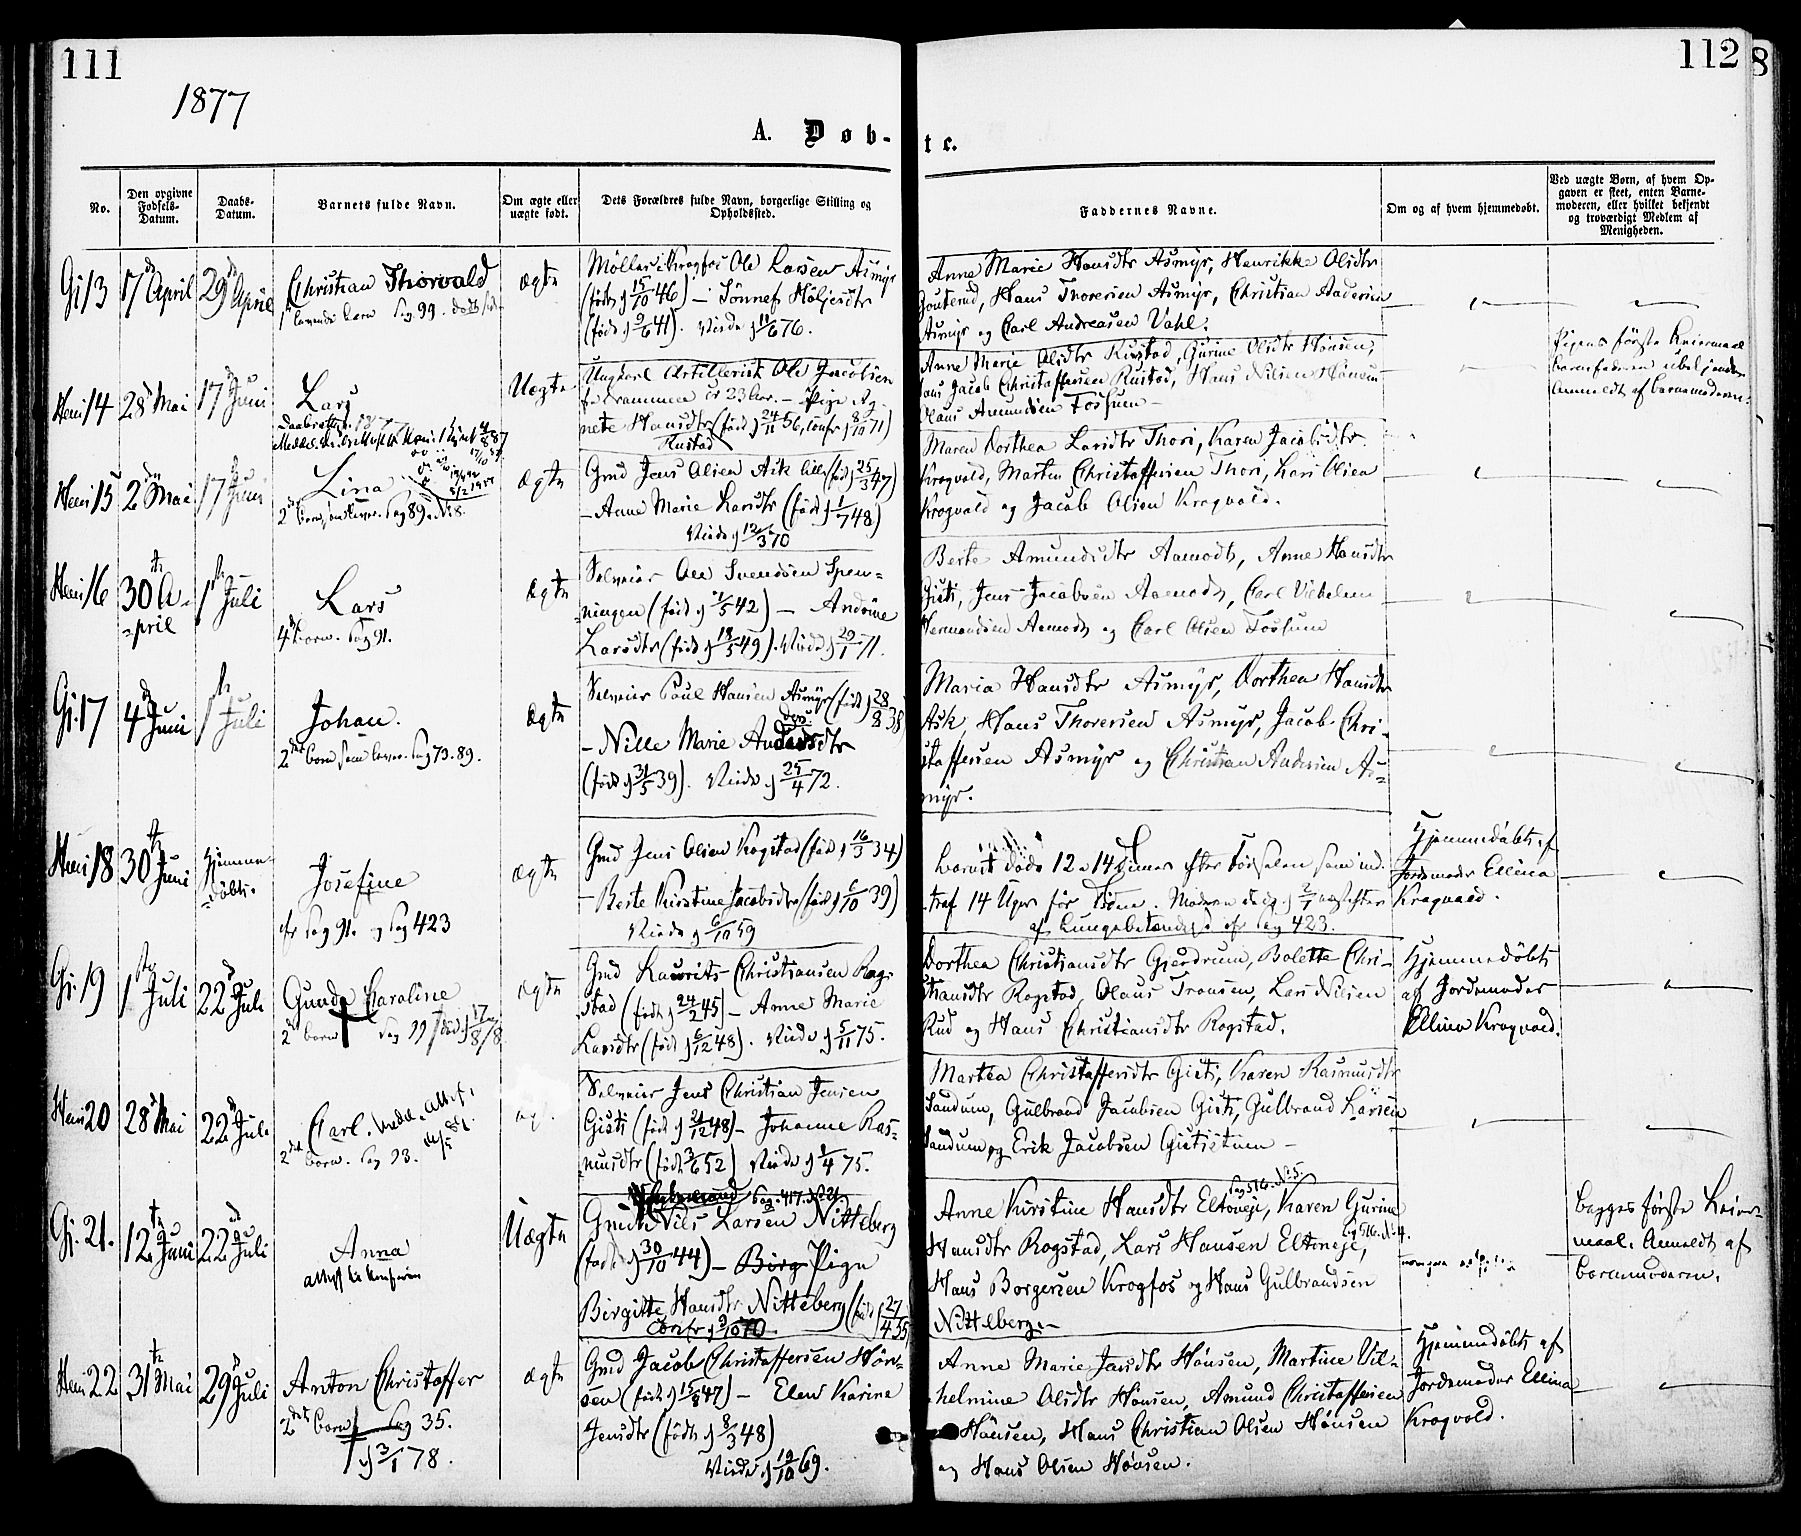 111
112
1877
A. Døb-
te.
No.
Den opgivne Fødsels-Datum.
Daabs-Datum.
Barnets fulde Navn.
Om ægte eller uægte født.
Dets Forældres fulde Navn, borgerlige Stilling og Opholdssted.
Faddernes Navne.
Om og af hvem hjemmedøbt.
Ved uægte Børn, af hvem Op-
gaven er skeet, enten Barne-
moderen, eller hvilket bekjendt
og troværdigt Medlem af
Menigheden.
Gj 13
17d April
29d April
Christian Thorvald
Pag 99.
ægte
Ole Larsen Asmyr
(født d 15/10 46) – Tønnes
(født d 9/6 41). Viede d 11/6 76.
Anne Marie Hansdtr Asmyr, Henrikke Olsdtr
Hans Thoresen Asmyr, Christian Andersen
Asmyr og Carl Andreasen Vahl.
Hem 14
28d Mai
17d Juni
Lars
Uægte
Ungkarl Artillerist Ole Jacobsen
23 Aar. – Pige Ag-
nete Hansdtr (født d 24/11 56, Confr d 8/10 71)
Rustad
Anne Marie Olsdtr Rustad, Gurine Olsdtr Hønsen,
Jacob Christoffersen Rustad, Hans Nilsen Hønsen
Olaus Amundsen Fossum –
Pigens første Leiermaal
Anmeldt af barnemoderen.
Hem 15
2d Mai
17d Juni
Lina
Pag 89. No 8.
ægte
Gmd Jens Olsen Ask (født d 25/3 47)
– Anne Marie Larsdtr (født d 1/7 48)
Viede d 12/3 70
Maren Dorthea Larsdtr Thori, Karen Jacobsdtr
Krogvold, Marten Christoffersen Thori, Lars Olsen
Krogvold og Jacob Olsen Krogvold.
Hem 16
30th A-
pril
1st Juli
Lars
4de barn. Pag 91.
ægte
Selveier Ole Svendsen Spen-
ningen (født d 1/5 42) – Andrine
Larsdtr (født d 18/5 49). Viede d 29/1 71.
Berte Amundsdtr Aamodt, Anne Hansdtr
Gisti, Jens Jacobsen Aamodt, Carl Vilhelm
Hermandsen Aamodt og Carl Olsen Fossum
Gj. 17
4d Juni
1st Juli
Johan.
2det barn som lever. Pag 79. 89.
ægte
Selveier Poul Hansen Asmyr (født d 28/8 38
– Nille Marie Andersdtr
(født d 31/5 39). Viede d 25/4 72.
Maria Hansdtr Asmyr, Dorthea Hansdtr
Ask, Hans Thoresen Asmyr, Jacob Chri-
stoffersen Asmyr og Christian Andersen As-
myr.
Hem 18
30th Juni
Hjemme-
døbt.
Josefine
cfr Pag 91. og Pag 423
ægte
Gmd Jens Olsen Rogstad (født d 16/3 34)
– Berte Kirstine Jacobsdtr (født d 6/10 39)
Viede d 6/10 59
barnet døde 12 a 14 Timer efter Fødselen som ind-
traf 14 Uger før Tiden. Moderen døde d 2/7
af Lungebetændelse cfr Pag 423.
Hjemmedøbt af
Jordemoder Ellina
Krogvold.
Gj. 19
1st Juli
22d Juli
Gunda Caroline
2det barn Pag 99
ægte
Gmd Laurits Christiansen Rog-
stad (født d 24/2 45) – Anne Marie
Larsdtr (født d 6/12 48). Viede d 5/11 75.
Dorthea Christiansdtr Gjerdrum, Bolette Chri-
stiansdtr Rogstad, Olaus Tronsen, Lars Nilsen
Rud og Hans Christiansdtr Rogstad.
Hjemmedøbt
af Jordemoder
Ellina Krogvold.
Hem 20
28d Mai
22d Juli
Carl.
2det barn. Pag 93.
Selveier Jens Christian Jensen
Gisti (født d 21/12 48) – Johanne Ras-
musdtr (født 3/6 52) Viede d 1/4 75.
Martea Christoffersdtr Gisti, Karen Rasmusdtr
Sandum, Gulbrand Jacobsen Gisti, Gulbrand Larsen
Sandum og Erik Jacobsen Gististuen –
Gj. 21.
12th Juni
22d Juli
Anna
Uægte
Pag. 417. No 21.
Nils Larsen Nitteberg
(født d 30/10 44) – Pige
Birgitte Hansdtr Nitteberg (født d 27/4 55
Confr d 9/10 70.
Pag 516. No 5.
Anne Kirstine Hansdtr Eltoneje, Karen Gurine
Pag 516. No 4.
Hansdtr Rogstad, Lars Hansen Eltoneje,
Hans Borgersen Krogfos og Hans Gulbrandsen
Nitteberg. –
begges første Leier-
maal. Anmeldt af
barnmoderen.
Hem 22
31te Mai
29d Juli
Anton Christoffer
2det barn Pag 35.
† d 3/1 78.
ægte
Gmd Jacob Christoffersen Høn-
sen (født d 15/8 47) – Elen Karine
Jensdtr (født d 8/3 48)
Viede d 12/10 69.
Anne Marie Jansdtr Hønsen, Martine Vil-
helmine Olsdtr Hønsen, Amund Christoffersen
Hønsen, Hans Christian Olsen Hønsen
og Hans Olsen Hønsen.
Hjemmedøbt af
Jordemoder Ellina
Krogvold.